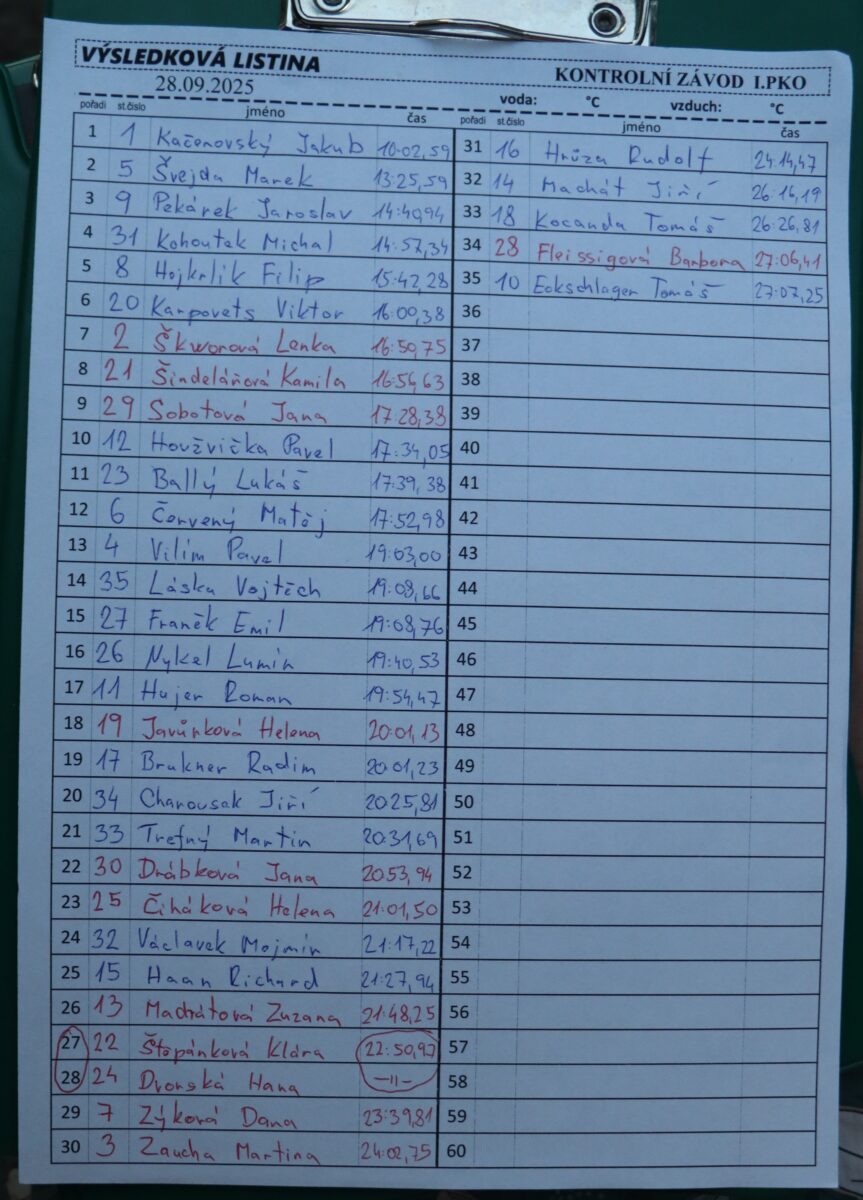 VÝSLEDKOVÁ LISTINA
KONTROLNÍ ZÁVOD I.PKO
28.09.2025
voda: °C vzduch: °C
pořadi st.číslo jméno čas
1 1 Kačenovský Jakub 10:02,59
2 5 Švejda Marek 13:25,59
3 9 Pekárek Jaroslav 14:40,94
4 31 Kohoutek Michal 14:57,34
5 8 Hojkrlik Filip 15:42,28
6 20 Karpovets Viktor 16:00,38
7 2 Škworová Lenka 16:50,75
8 21 Šindelářová Kamila 16:54,63
9 29 Sobotová Jana 17:28,38
10 12 Houžvička Pavel 17:34,05
11 23 Ballý Lukáš 17:39,38
12 6 Červený Matěj 17:52,98
13 4 Vilím Pavel 19:03,00
14 35 Láska Vojtěch 19:08,66
15 27 Franěk Emil 19:08,76
16 26 Nykel Lumír 19:40,53
17 11 Hujer Roman 19:54,47
18 19 Javůrková Helena 20:01,13
19 17 Brukner Radim 20:01,23
20 34 Charousek Jiří 20:25,81
21 33 Trefný Martin 20:31,69
22 30 Drábková Jana 20:53,94
23 25 Čiháková Helena 21:01,50
24 32 Václavek Mojmír 21:17,22
25 15 Haan Richard 21:27,94
26 13 Madrátová Zuzana 21:48,25
27 22 Štěpánková Klára 22:50,97
28 24 Dvorská Hana —11—
29 7 Zýková Dana 23:39,81
30 3 Zaucha Martina 24:02,75
pořadi st.číslo jméno čas
31 16 Hrůza Rudolf 24:14,47
32 14 Machát Jiří 26:14,19
33 18 Kocanda Tomáš 26:26,81
34 28 Fleissigová Barbora 27:06,41
35 10 Eckschlager Tomáš 27:07,25
36
37
38
39
40
41
42
43
44
45
46
47
48
49
50
51
52
53
54
55
56
57
58
59
60